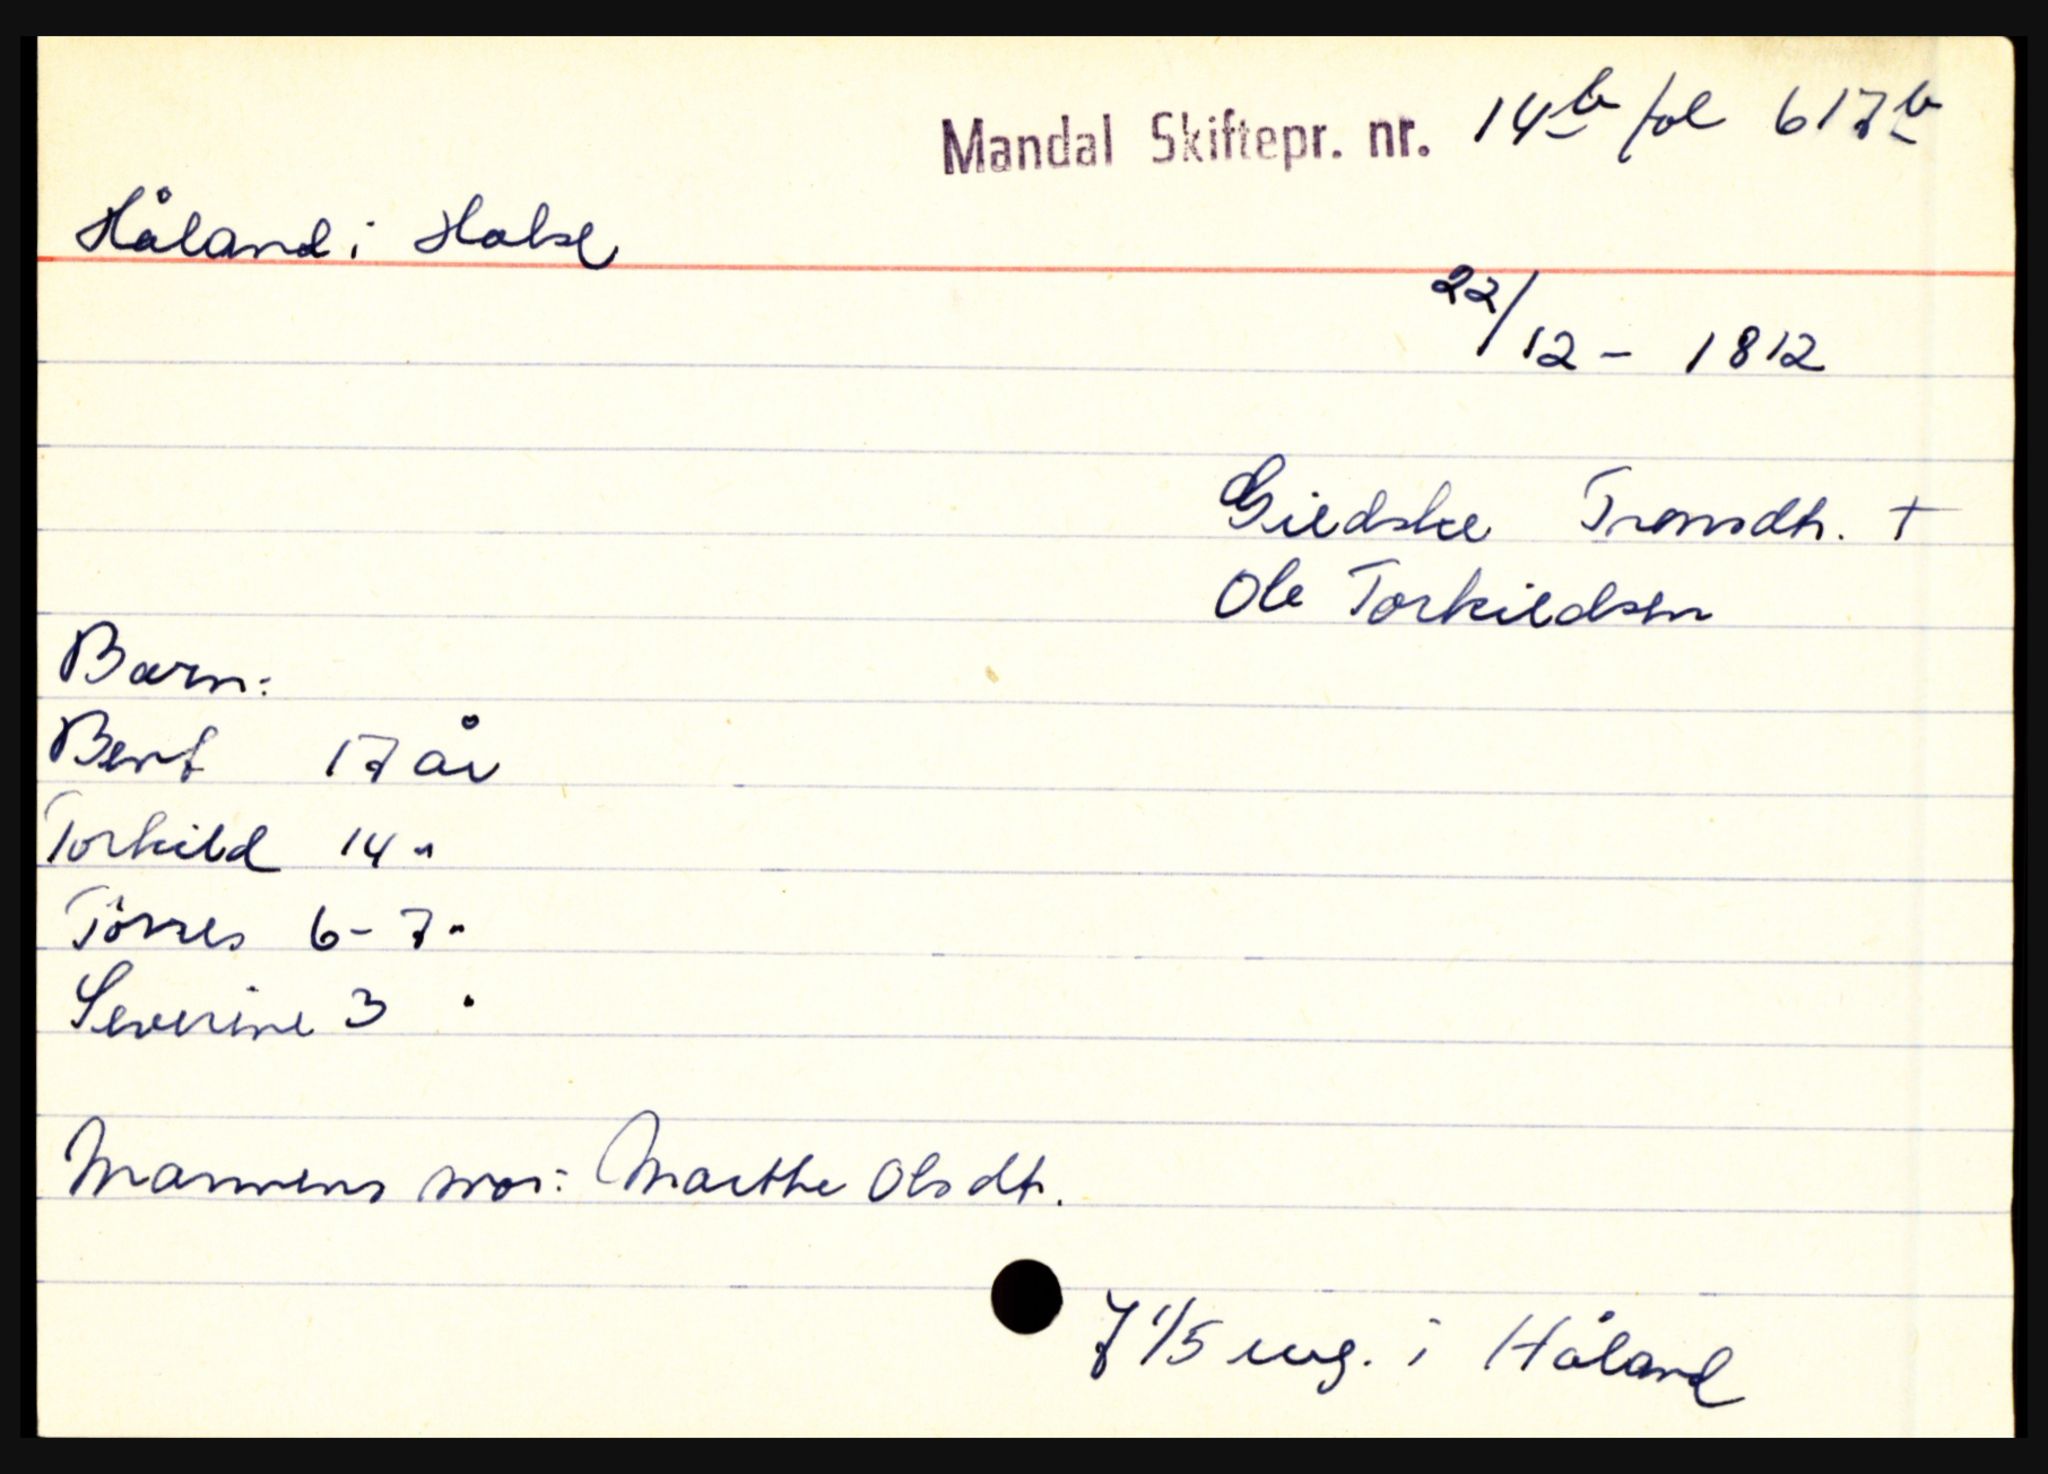 Mandal Skiftepr. nr. 14b fol 617b
Håland i Halse
22/12 - 1812
Giedske Tronsdtr. +
Ole Torkildsen
Barn:
Bent 17 år
Torkild 14 "
Törres 6-7 "
Severine 3 "
Mannens mor: Marthe Olsdtr.
7 1/5 eng. i Håland